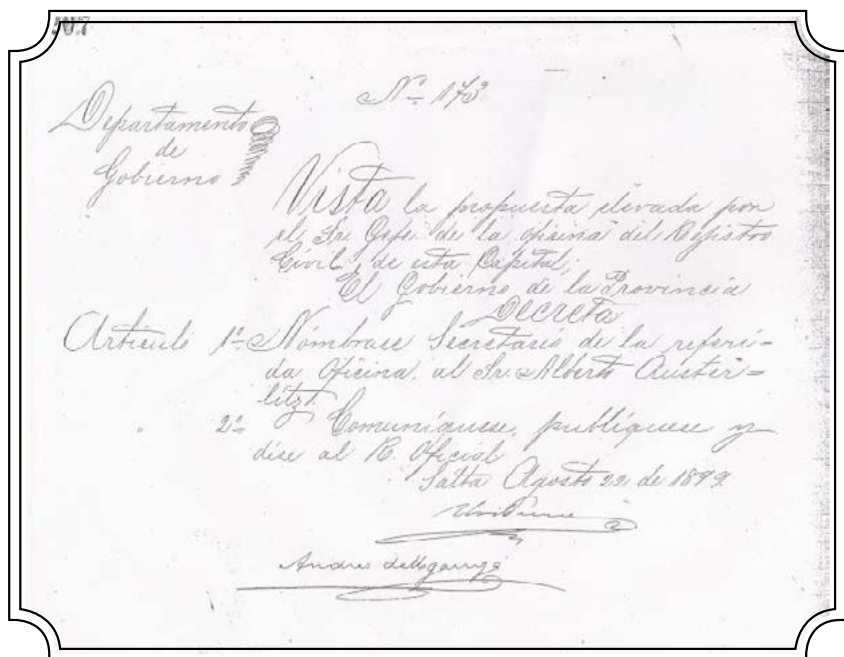 507
Nº 173
Departamento
de
Gobierno
Vista la propuesta elevada por
el Sr. Gefe de la ofisina del Rejistro
Civil, de esta Capital;
El Gobierno de la Provincia
Decreta
Articulo 1º Nómbrase Secretario de la referi-
da Oficina al Sr. Alberto Auster-
litz.
2º Comuníquese, publíquese y
dése al R. Oficial
Salta Agosto 22 de 1899.
Andres de Ugarriza